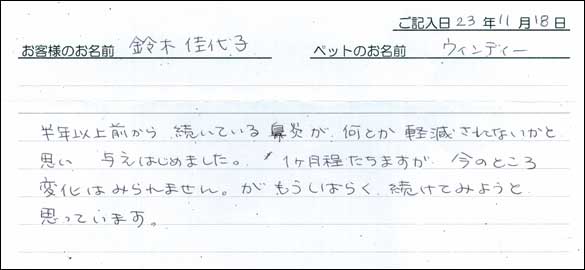 ご記入日 23 年 11 月 18 日
お客様のお名前 鈴木 佳代子 ペットのお名前 ウィンディー
半年以上前から 続いている 鼻炎が 何とか 軽減されないかと
思い 与えはじめました。 1ヶ月程たちますが 今のところ
変化はみられません。が もうしばらく 続けてみようと
思っています。